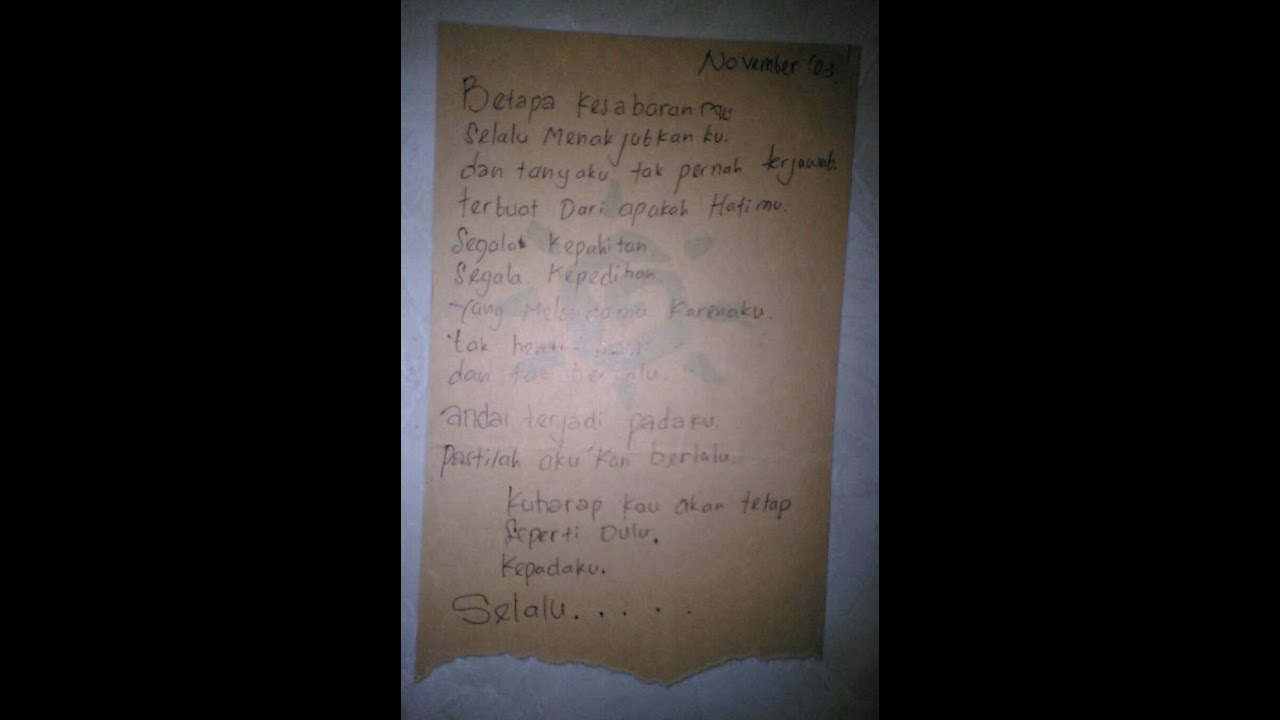 November '03
Betapa kesabaranmu
Selalu Menakjubkanku.
dan tanyaku tak pernah terjawab.
terbuat Dari apakah Hatimu.
Segala Kepahitan
Segala Kepedihan
yang Karenaku.
tak
dan tak berlalu.
andai terjadi padaku.
pastilah aku 'kan berlalu.
Kuharap kau akan tetap
Seperti Dulu.
Kepadaku.
Selalu. . . . .